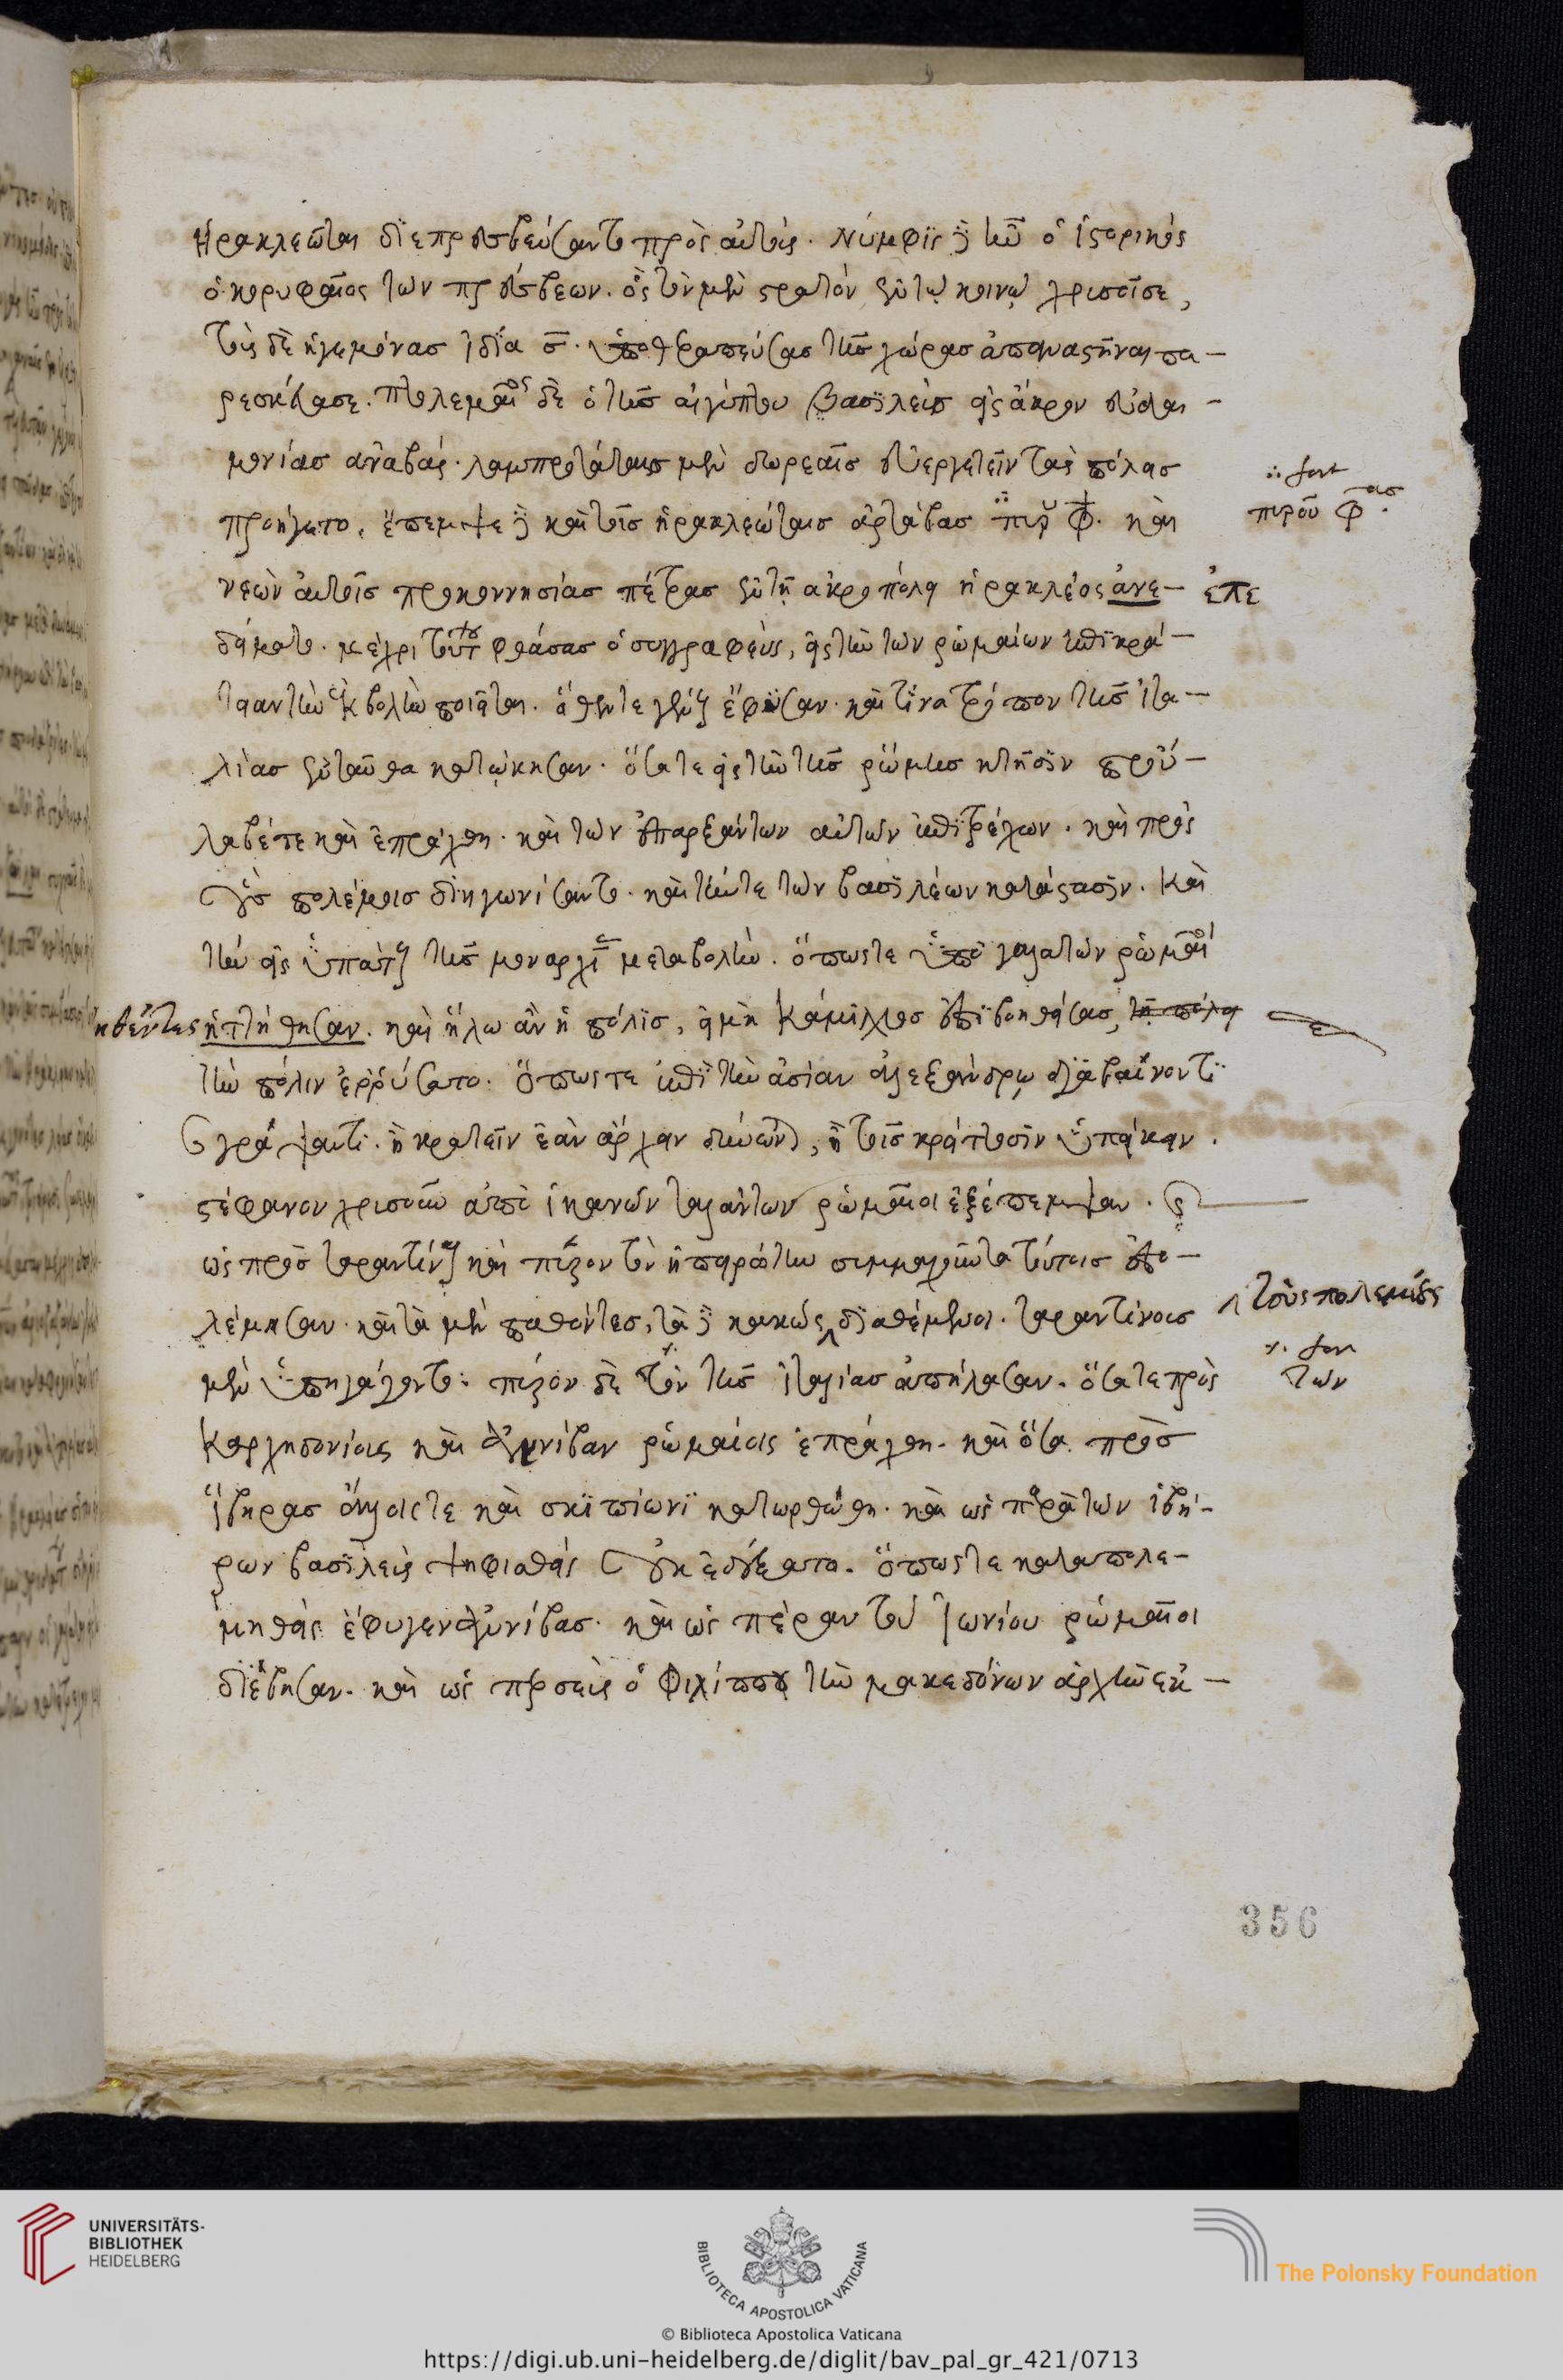 Ἡρακλεῶται διεπρεσβεύσαντο πρὸς αὐτούς. Νύμφις δὲ ἦν ὁ ἱστορικὸς
ὁ κορυφαῖος τῶν πρέσβεων. ὃς τὸν μὲν στρατὸν ἐν τῷ κοινῷ χρυσοῖς ͵ε,
τοὺς δὲ ἡγεμόνας ἰδία σ̄. ὑποθεραπεύσας τῆς χώρας ἀπαναστῆναι πα-
ρεσκεύασε. Πτολεμαῖος δὲ ὁ τῆς αἰγύπτου βασιλεὺς εἰς ἄκρον εὐδαι-
μονίας ἀναβάς. λαμπροτάταις μὲν δωρεαῖς εὐεργετεῖν τὰς πόλεις
προήγετο. ἔπεμψε δὲ καὶ τοῖς ἡρακλεώταις ἀρτάβας πυροῦ φ. καὶ
fort πυροῦ φ̄ας
νεὼν αὐτοῖς προκοννησίας πέτρας ἐν τῇ ἀκροπόλει ἡρακλέος ἀνε- ἐπε
δείματο. μέχρι τούτου φθάσας ὁ συγγραφεύς, εἰς τὴν τῶν ῥωμαίων ἐπικρά-
τειαν τὴν ἐκβολὴν ποιεῖται. ὅθεν τε γένους ἔφυσαν. καὶ τίνα τρόπον τῆς ἰτα-
λίας ἐνταῦθα κατῴκησαν. ὅσα τε εἰς τὴν τῆς ῥώμης κτῆσιν πρού-
λαβέ τε καὶ ἐπράχθη. καὶ τῶν ὑπαρξάντων αὐτῶν ἐπιτρέχων. καὶ πρὸς
οὓς πολέμοις διηγωνίσαντο. καὶ τήν τε τῶν βασιλέων κατάστασιν. Καὶ
τὴν εἰς ὑπάτους τῆς μοναρχίας μεταβολήν. ὅπως τε ὑπὸ γαλατῶν ῥωμαῖοι
κηθέντες ἡττήθησαν. καὶ ἥλω ἂν ἡ πόλις, εἰ μὴ Κάμιλλος ἐπιβοηθήσας, τῇ πόλει
τὴν πόλιν ἐρρύσατο. Ὅπως τε ἐπὶ τὴν ἀσίαν ἀλεξάνδρῳ διαβαίνοντι
γράψαντι. ἢ κρατεῖν ἐὰν ἄρχειν δύνωνται, ἢ τοῖς κρείττοσιν ὑπείκειν.
στέφανον χρυσοῦν ἀπὸ ἱκανῶν ταλάντων ῥωμαῖοι ἐξέπεμψαν. καὶ
ὡς πρὸς ταραντίνους καὶ πύρρον τὸν ἠπειρώτην συμμαχοῦντα τούτοις ἐπο-
λέμησαν. καὶ τὰ μὲν παθόντες, τὰ δὲ κακῶς διαθέμενοι. ταραντίνους τοὺς πολεμίους
μὲν ὑπηγάγοντο. πύρρον δὲ τὸν τῆς ἰταλίας ἀπήλασαν. ὅσα τε πρὸς
fort τῶν
Καρχηδονίους καὶ ἀννίβαν ῥωμαίοις ἐπράχθη. καὶ ὅσα πρὸς
ἴβηρας ἄλλοις τε καὶ σκιπίωνι κατωρθώθη. καὶ ὡς παρὰ τῶν ἰβή-
ρων βασιλεὺς ψηφισθεὶς οὐκ ἐδέξατο. ὅπως τε καταπολε-
μηθεὶς ἔφυγεν ἀννίβας. καὶ ὡς πέραν τοῦ Ἰωνίου ῥωμαῖοι
διέβησαν. καὶ ὡς περσεὺς ὁ Φιλίππου τὴν μακεδόνων ἀρχὴν ἐκ-
356
UNIVERSITÄTS-
BIBLIOTHEK
HEIDELBERG
BIBLIOTECA APOSTOLICA VATICANA
The Polonsky Foundation
© Biblioteca Apostolica Vaticana
https://digi.ub.uni-heidelberg.de/diglit/bav_pal_gr_421/0713